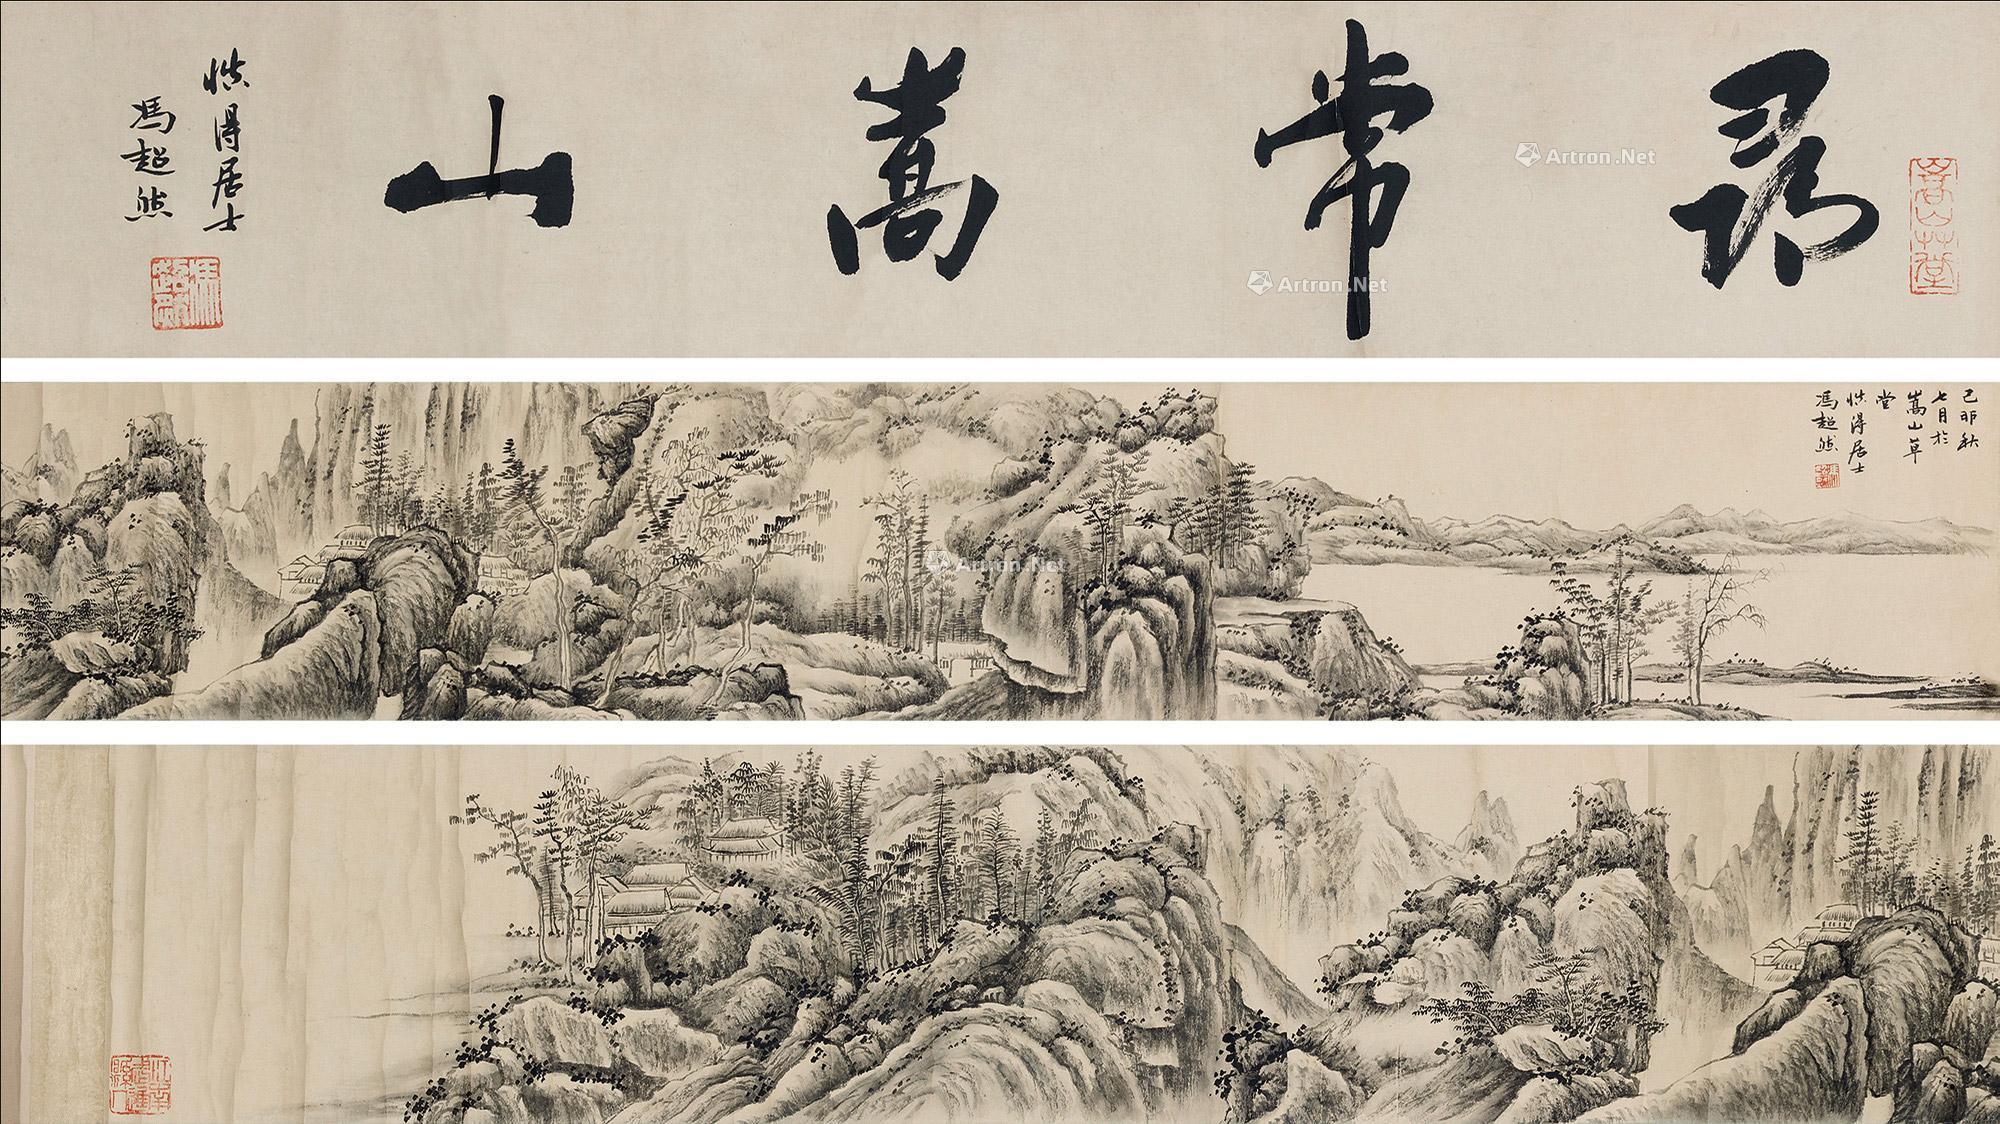 嵩山草堂
尋常嵩山
慎得居士
馮超然
馮超然
Artron.Net
Artron.Net
己卯秋
七月於
嵩山草
堂
慎得居士
馮超然
Artron.Net